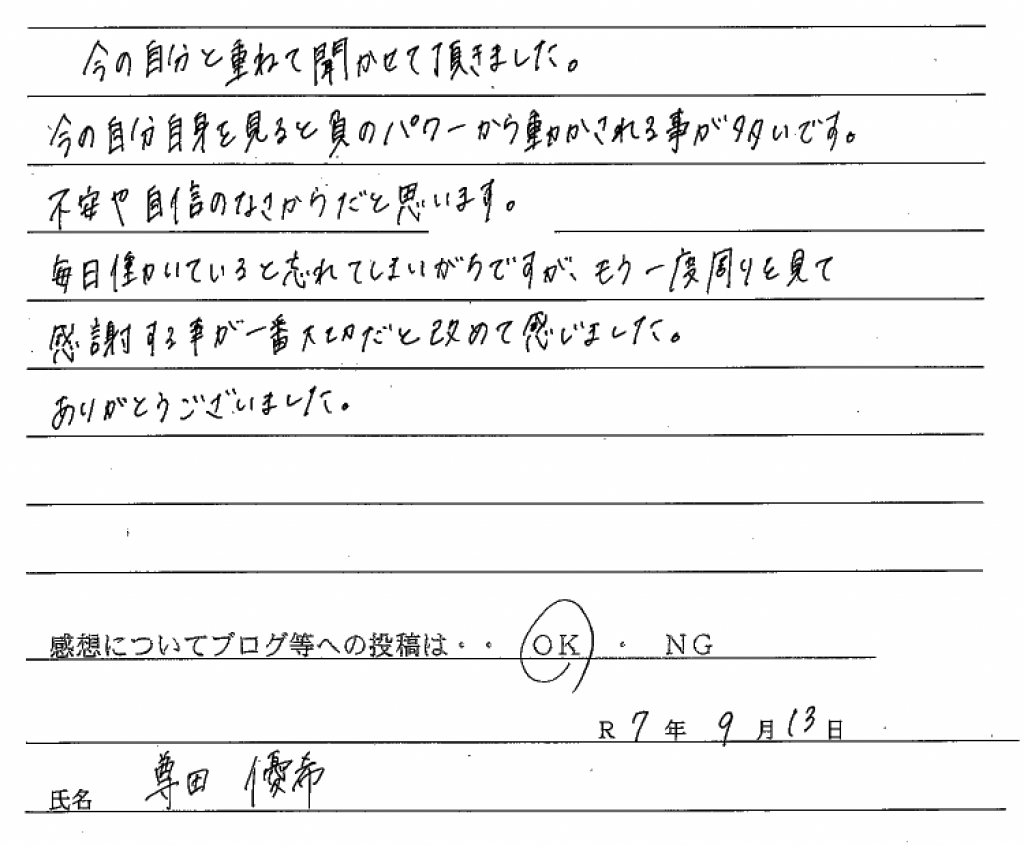 今の自分と重ねて聞かせて頂きました。
今の自分自身を見ると負のパワーから動かされる事が多いです。
不安や自信のなさからだと思います。
毎日働いていると忘れてしまいがちですが、もう一度周りを見て
感謝する事が一番大切だと改めて感じました。
ありがとうございました。
感想についてブログ等への投稿は・・ OK ・ NG
R7年 9月13日
氏名 尊田 優希